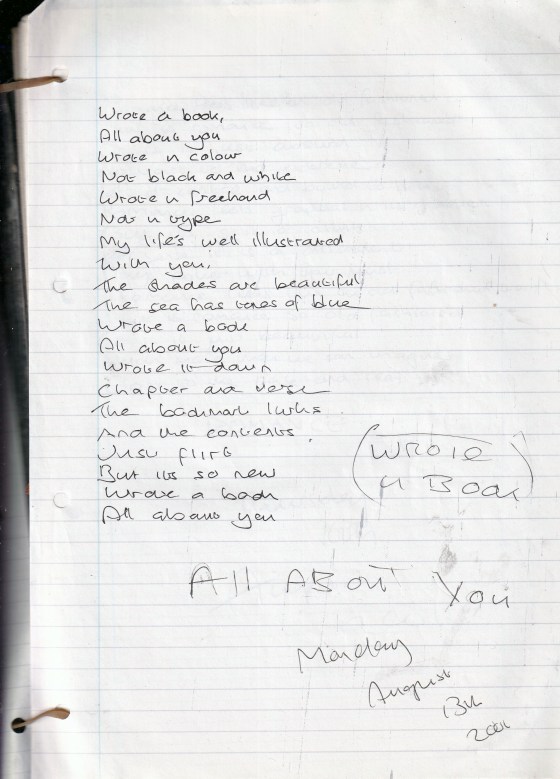 Wrote a book,
All about you
Wrote in colour
Not black and white
Wrote in freehand
Not in type
My life's well illustrated
With you.
The shades are beautiful
The sea has tones of blue
Wrote a book
All about you
Wrote it down
Chapter and verse
The bookmark lurks
And the contents,
Just flirt
But its so new
Wrote a book
All about you
(Wrote
A Book)
All About You
Monday
August
13th